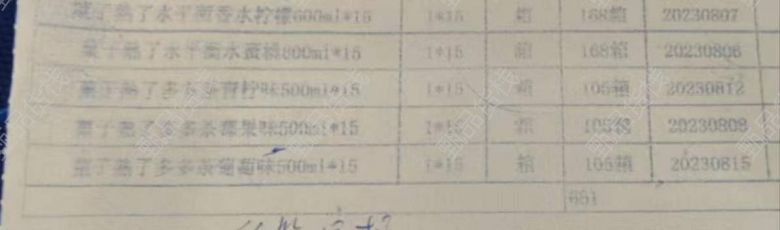 果子熟了水平衡香水柠檬600ml*15 1*15 箱 168箱 20230807
果子熟了水平衡水蜜桃600ml*15 1*15 箱 168箱 20230806
果子熟了多多茶青柠味500ml*15 1*15 箱 105箱 20230812
果子熟了多多茶莓果味500ml*15 1*15 箱 105箱 20230809
果子熟了多多茶葡萄味500ml*15 1*15 箱 105箱 20230815
651